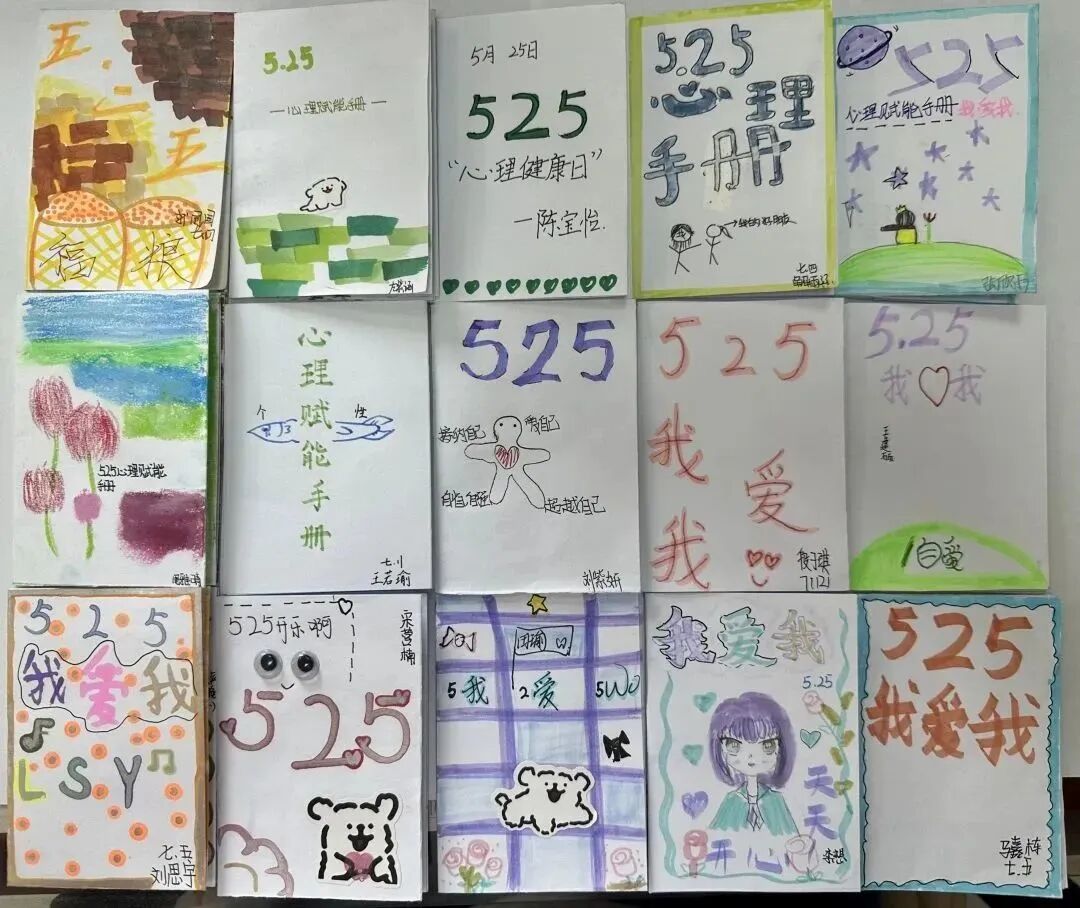 五.二五
福 粮
5.25
心理赋能手册
5月 25日
525
“心理健康日”
—陈宝怡.
5.25
心理
手册
→我的好朋友
七.四
525
心理赋能手册 我爱我
525心理赋能
手册
心理赋能手册
个 性
七.八
王若瑜
525
接纳自己 爱自己
自强 超越自己
刘紫妍
525
我
爱
我
5.25
我♡我
自爱
525
我爱我
LSY
七.五
刘思宇
525开乐啊
525
5我 2爱 5wo
我爱我
5.25
天天
开心
李想
525
我爱我
七.五